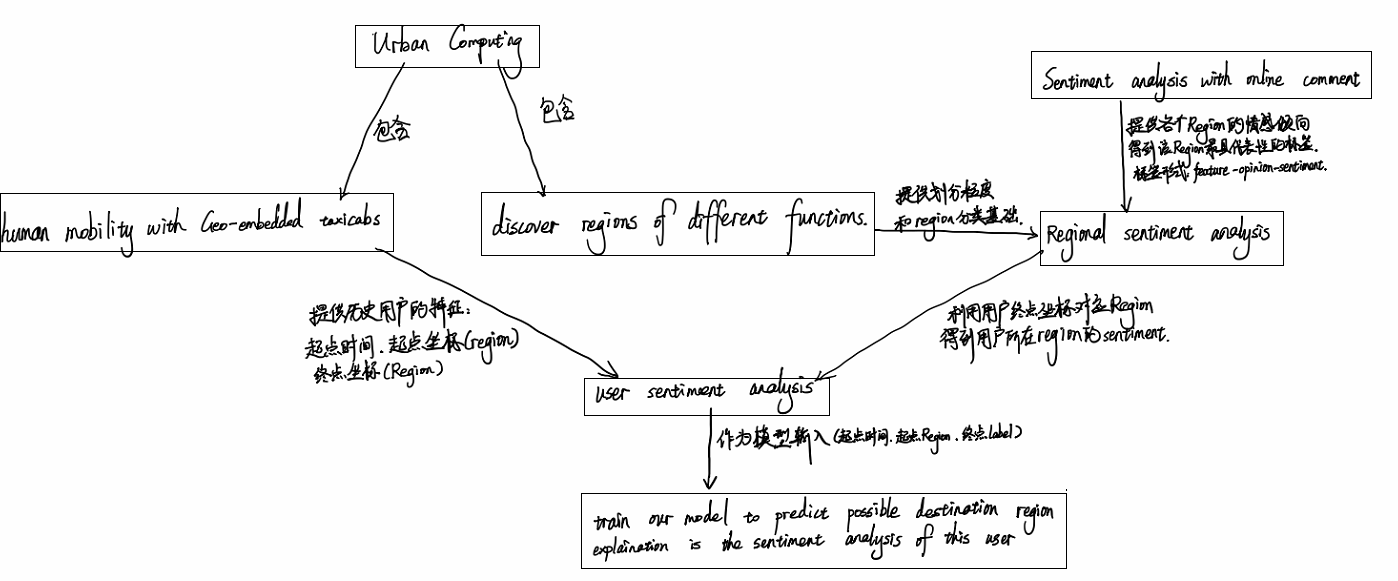 Urban Computing
Sentiment analysis with online comment
包含
包含
提供各个Region的情感倾向
得到该Region最具代表性的标签.
标签形式: feature-opinion-sentiment.
human mobility with Geo-embedded taxicabs
discover regions of different functions.
提供划分粒度
和region分类基础.
Regional sentiment analysis
提供历史用户的特征:
起点时间.起点坐标(region)
终点坐标(Region)
利用用户终点坐标对应Region
得到用户所在region的sentiment.
user sentiment analysis
作为模型输入(起点时间.起点Region.终点label)
train our model to predict possible destination region
explaination is the sentiment analysis of this user